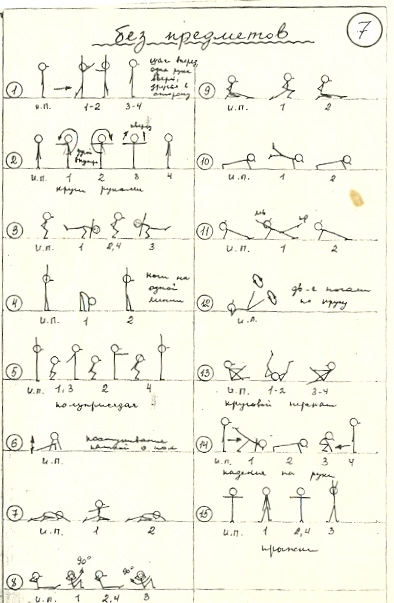 без предметов
7
1
шаг вперед,
одна рука
вверх,
другая в
сторону
И.П. 1-2 3-4
2
вперед
И.П. 1 2 3 4
круги руками
3
И.П. 1 2,4 3
4
ноги на
одной
линии
И.П. 1 2
5
И.П. 1,3 2 4
полуприседая
6
постукивание
пяткой о пол
И.П.
7
И.П. 1 2
8
90°
90°
И.П. 1 2,4 3
9
И.П. 1 2
10
И.П. 1 2
11
И.П. 1 2
12
дв-е ногами
по кругу
И.П.
13
И.П. 1-2 3-4
круговой перекат
14
И.П. 1 2 3 4
падение на руки
15
И.П. 1 2,4 3
прыжки